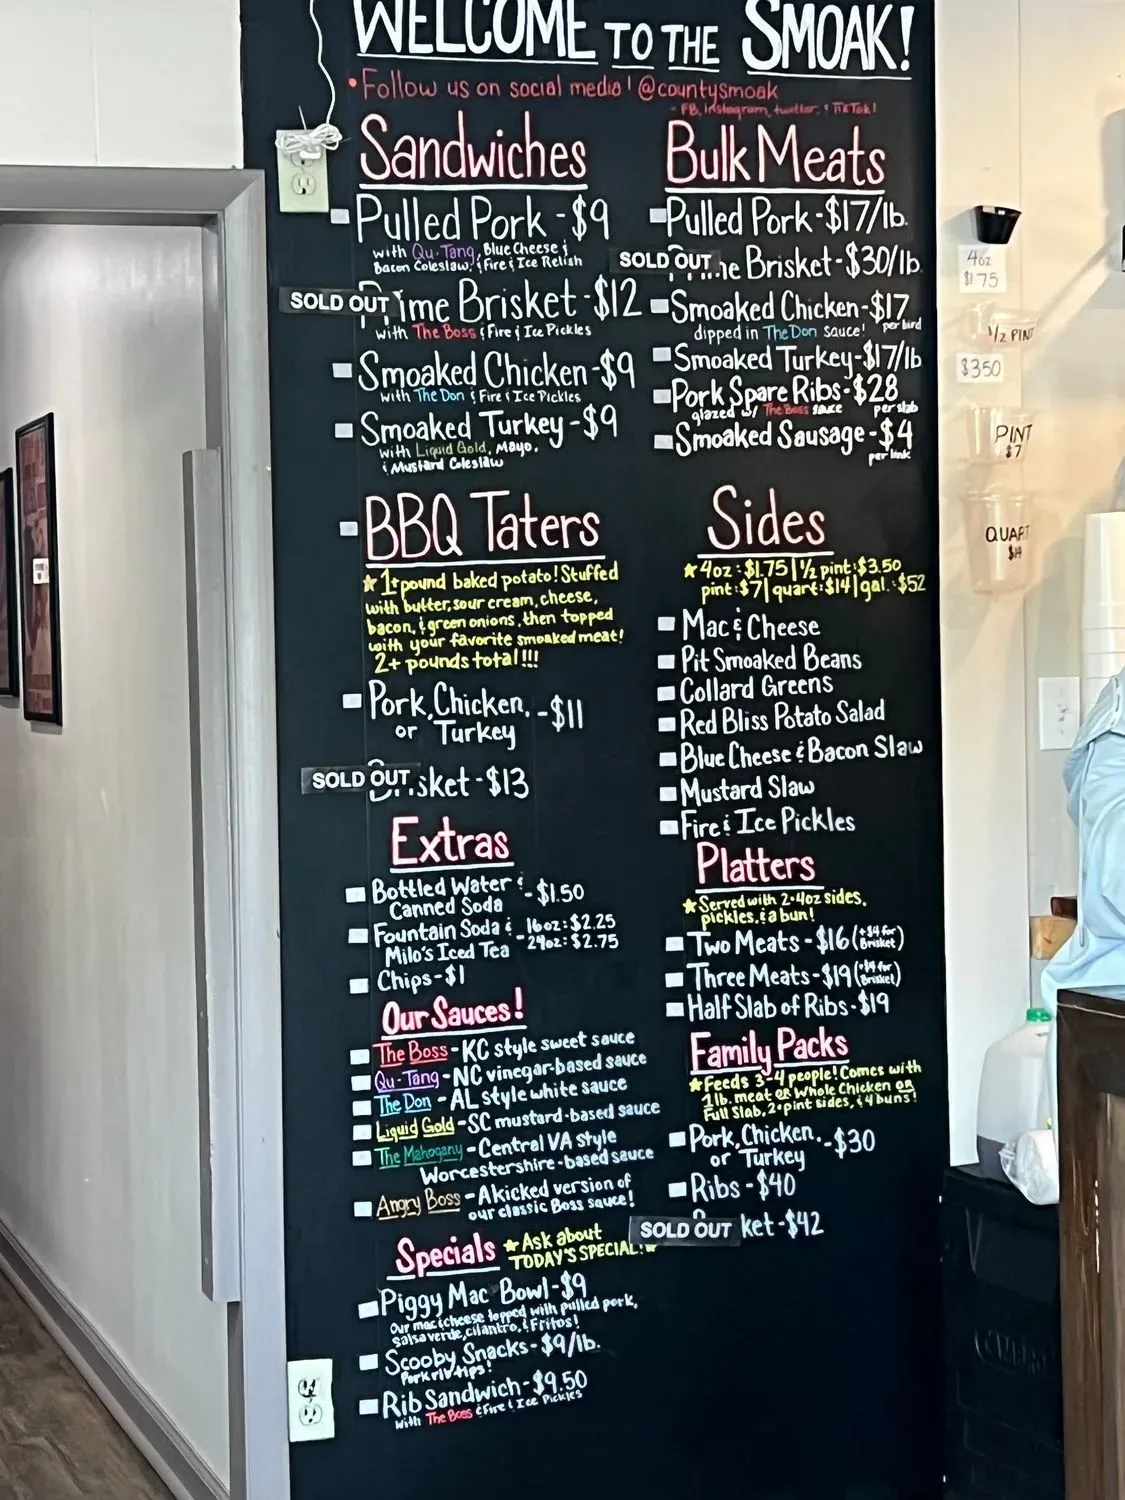 WELCOME TO THE SMOAK!
• Follow us on social media! @countysmoak
- FB, Instagram, twitter, & TikTok!
Sandwiches
Pulled Pork - $9
with Qu-Tang, Blue Cheese &
Bacon Coleslaw, & Fire & Ice Relish
SOLD OUT
Prime Brisket - $12
with The Boss & Fire & Ice Pickles
Smoaked Chicken - $9
with The Don & Fire & Ice Pickles
Smoaked Turkey - $9
with Liquid Gold, Mayo,
& Mustard Coleslaw
BBQ Taters
★ 1+pound baked potato! Stuffed
with butter, sour cream, cheese,
bacon, & green onions, then topped
with your favorite smoaked meat!
2+ pounds total!!!
Pork, Chicken, - $11
or Turkey
SOLD OUT
Brisket - $13
Extras
Bottled Water & - $1.50
Canned Soda
Fountain Soda & - 16oz: $2.25
Milo's Iced Tea - 24oz: $2.75
Chips - $1
Our Sauces!
The Boss - KC style sweet sauce
Qu-Tang - NC vinegar-based sauce
The Don - AL style white sauce
Liquid Gold - SC mustard-based sauce
The Mahogany - Central VA style
Worcestershire-based sauce
Angry Boss - A kicked version of
our classic Boss sauce!
Specials ★ Ask about
TODAY'S SPECIAL! ★
Piggy Mac Bowl - $9
Our mac & cheese topped with pulled pork,
salsa verde, cilantro, & Fritos!
Scooby Snacks - $9/lb.
Pork rib tips!
Rib Sandwich - $9.50
with The Boss & Fire & Ice Pickles
Bulk Meats
Pulled Pork - $17/lb.
SOLD OUT
Prime Brisket - $30/lb
Smoaked Chicken - $17
dipped in The Don sauce! per bird
Smoaked Turkey - $17/lb
Pork Spare Ribs - $28
glazed w/ The Boss sauce per slab
Smoaked Sausage - $4
per link
Sides
★ 4oz: $1.75 | ½ pint: $3.50
pint: $7 | quart: $14 | gal.: $52
Mac & Cheese
Pit Smoaked Beans
Collard Greens
Red Bliss Potato Salad
Blue Cheese & Bacon Slaw
Mustard Slaw
Fire & Ice Pickles
Platters
★ Served with 2-4oz sides,
pickles, & a bun!
Two Meats - $16 (+$4 for Brisket)
Three Meats - $19 (+$4 for Brisket)
Half Slab of Ribs - $19
Family Packs
★ Feeds 3-4 people! Comes with
1 lb. meat OR Whole Chicken OR
Full Slab, 2-pint sides, & 4 buns!
Pork, Chicken, - $30
or Turkey
Ribs - $40
SOLD OUT
ket - $42
4oz
$1.75
1/2 PINT
$3.50
PINT
$7
QUART
$14